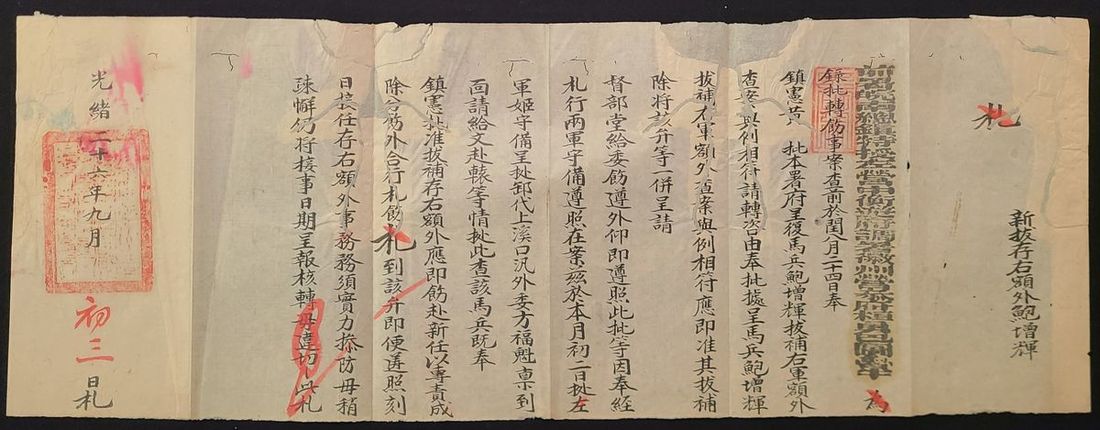 新拔存右額外鮑增輝
札
為
錄批轉飭事案查前於閏八月二十四日奉
鎮憲黃 批本署府呈復馬兵鮑增輝拔補右軍額外
查案與例相符請轉咨由奉批據呈馬兵鮑增輝
拔補右軍額外查案與例相符應即准其拔補
除將該弁等一併呈請
督部堂給委飭遵外仰即遵照此批等因奉經
札行兩軍守備遵照在案茲於本月初二日據左
軍姬守備呈據卸代上溪口汛外委方福魁稟到
面請給文赴轅等情據此查該馬兵既奉
鎮憲批准拔補存右額外應即飭赴新任以專責成
除分飭外合行札飭札到該弁即便遵照刻
日接任存右額外事務務須實力操防毋稍
疎懈仍將接事日期呈報核轉毋違切切此札
光緒二十六年九月初三日札